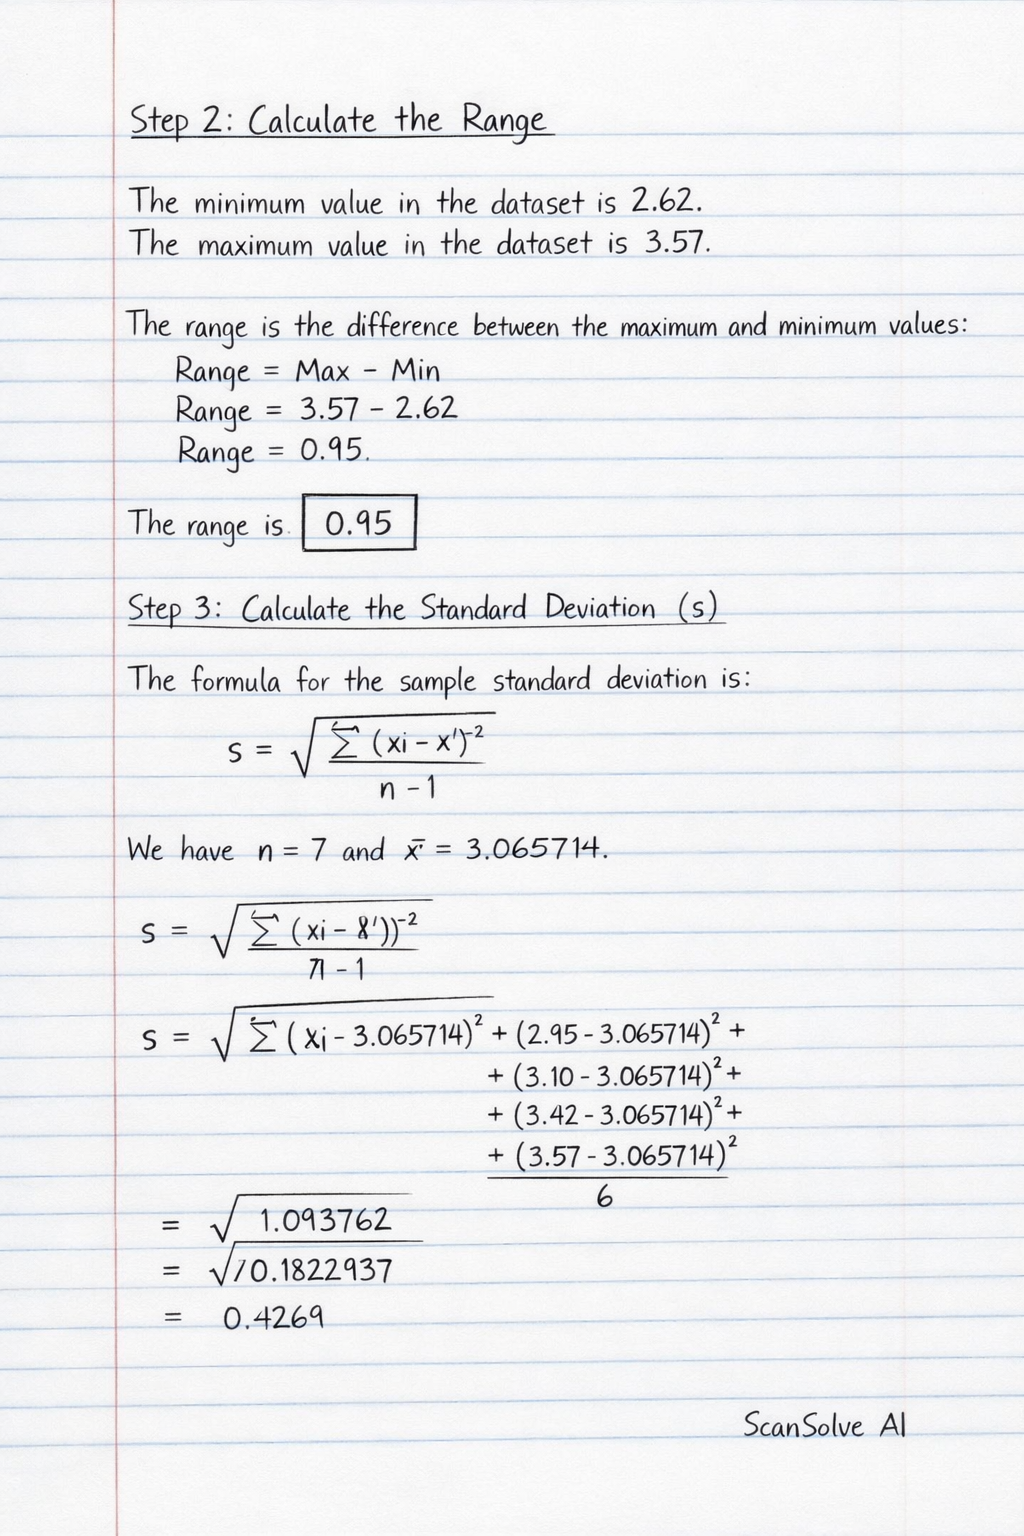 Step 2: Calculate the Range
The minimum value in the dataset is 2.62.
The maximum value in the dataset is 3.57.
The range is the difference between the maximum and minimum values:
Range = Max - Min
Range = 3.57 - 2.62
Range = 0.95.
The range is. 0.95
Step 3: Calculate the Standard Deviation (s)
The formula for the sample standard deviation is:
s = √ ∑ (xi - x')⁻²
n - 1
We have n = 7 and x̄ = 3.065714.
s = √ ∑ (xi - 8'))⁻²
71 - 1
s = √ ∑ (xi - 3.065714)² + (2.95 - 3.065714)² +
+ (3.10 - 3.065714)² +
+ (3.42 - 3.065714)² +
+ (3.57 - 3.065714)²
6
= √ 1.093762
= √/0.1822937
= 0.4269
ScanSolve AI